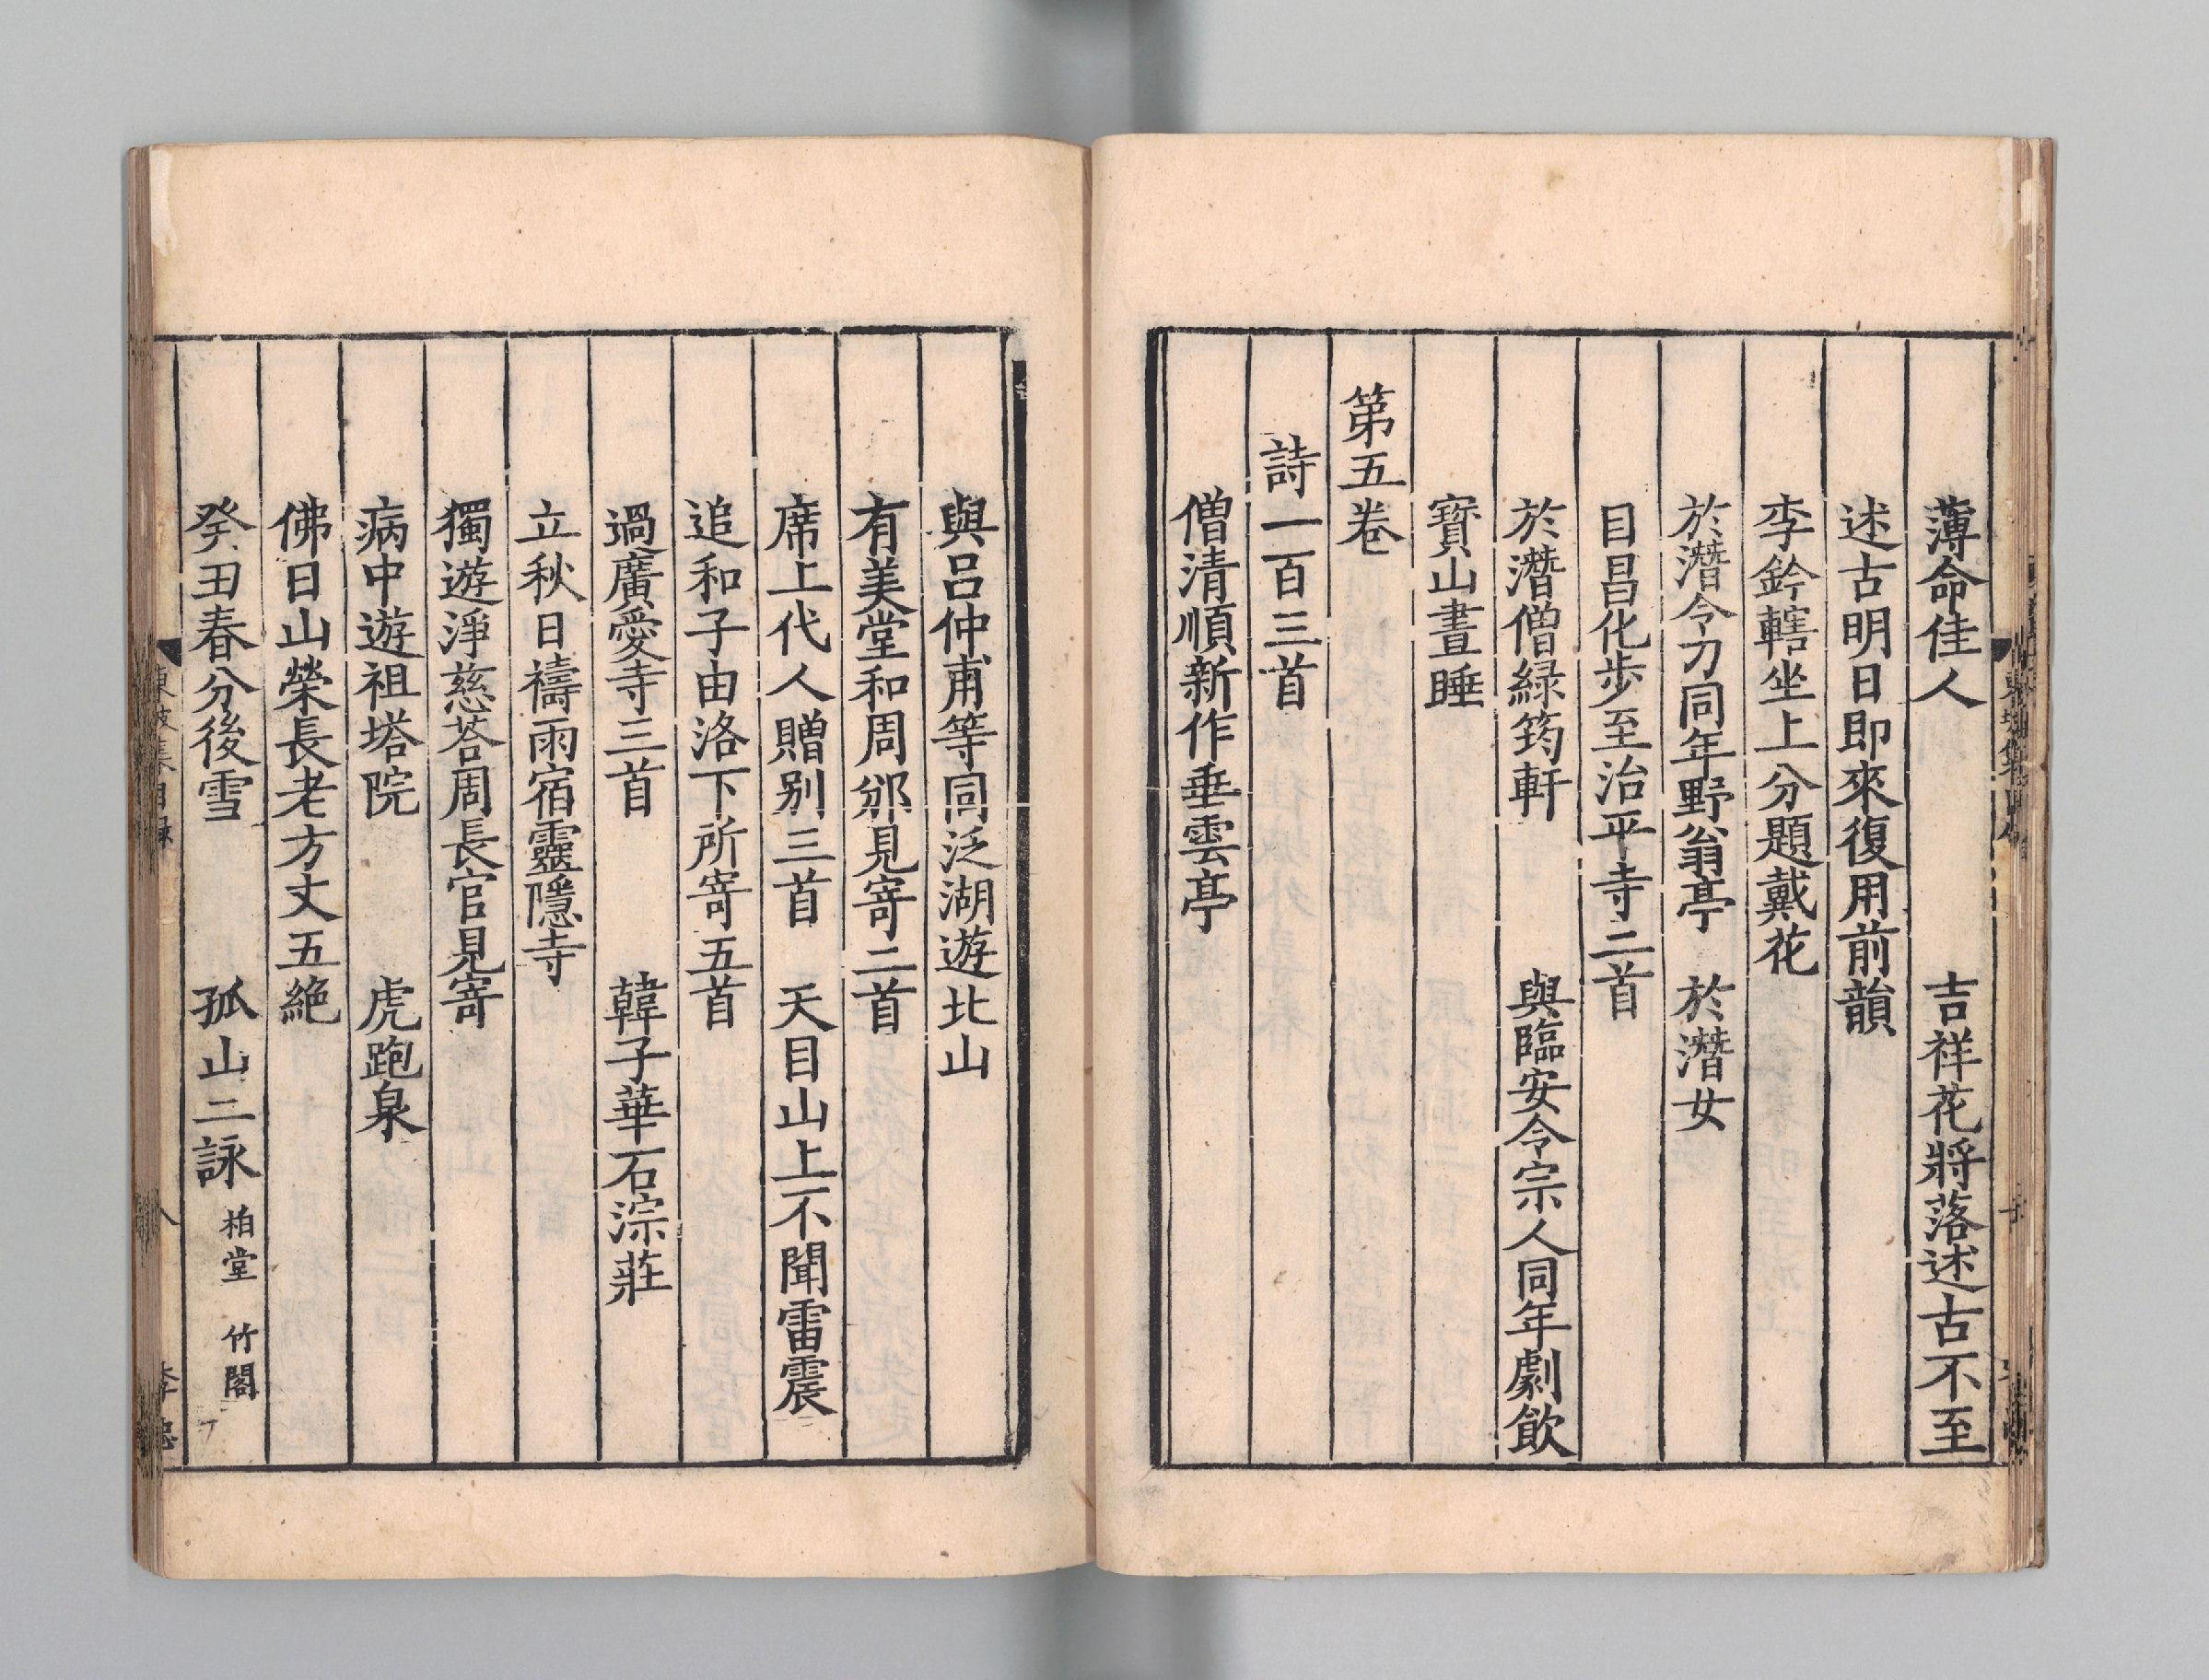 薄命佳人　吉祥花將落述古不至
述古明日即來復用前韻
李鈐轄坐上分題戴花
於潛令刀同年野翁亭　於潛女
自昌化步至治平寺二首
於潛僧綠筠軒　與臨安令宗人同年劇飲
寶山晝睡
第五卷
詩一百三首
僧清順新作垂雲亭
與呂仲甫等同泛湖遊北山
有美堂和周邠見寄二首
席上代人贈别三首　天目山上不聞雷震
追和子由洛下所寄五首
過廣愛寺三首　韓子華石淙莊
立秋日禱雨宿靈隱寺
獨遊淨慈荅周長官見寄
病中遊祖塔院　虎跑泉
佛日山榮長老方丈五絶
癸丑春分後雪　孤山二詠 柏堂 竹閣
東坡集目錄
八